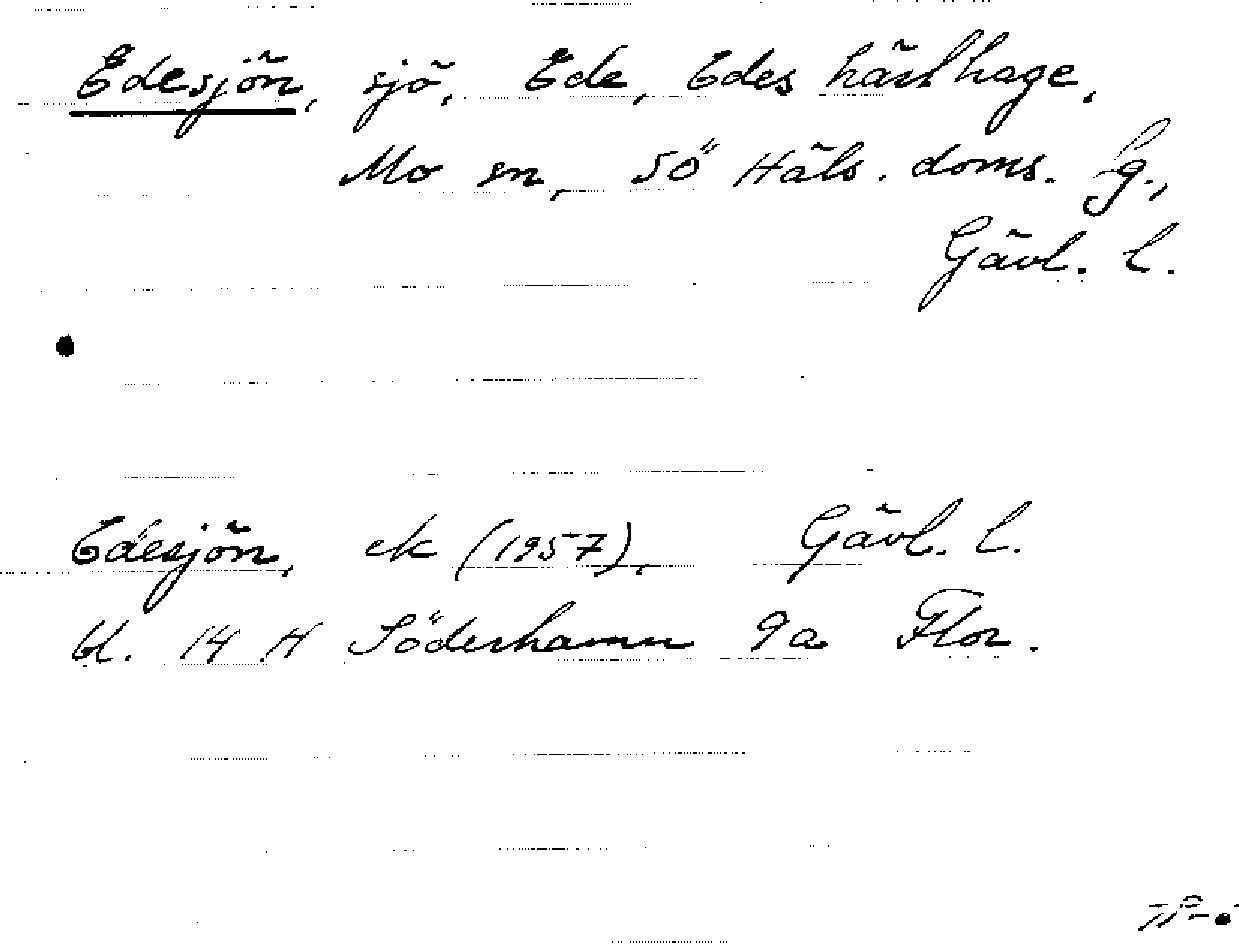 Edesjön, sjö, Ede, Edes hästhage,
Mo sn, SÖ Häls. doms. sg.,
Gävl. l.
Edesjön, ek (1957), Gävl. l.
bl. 14 H Söderhamn 9a Flor.